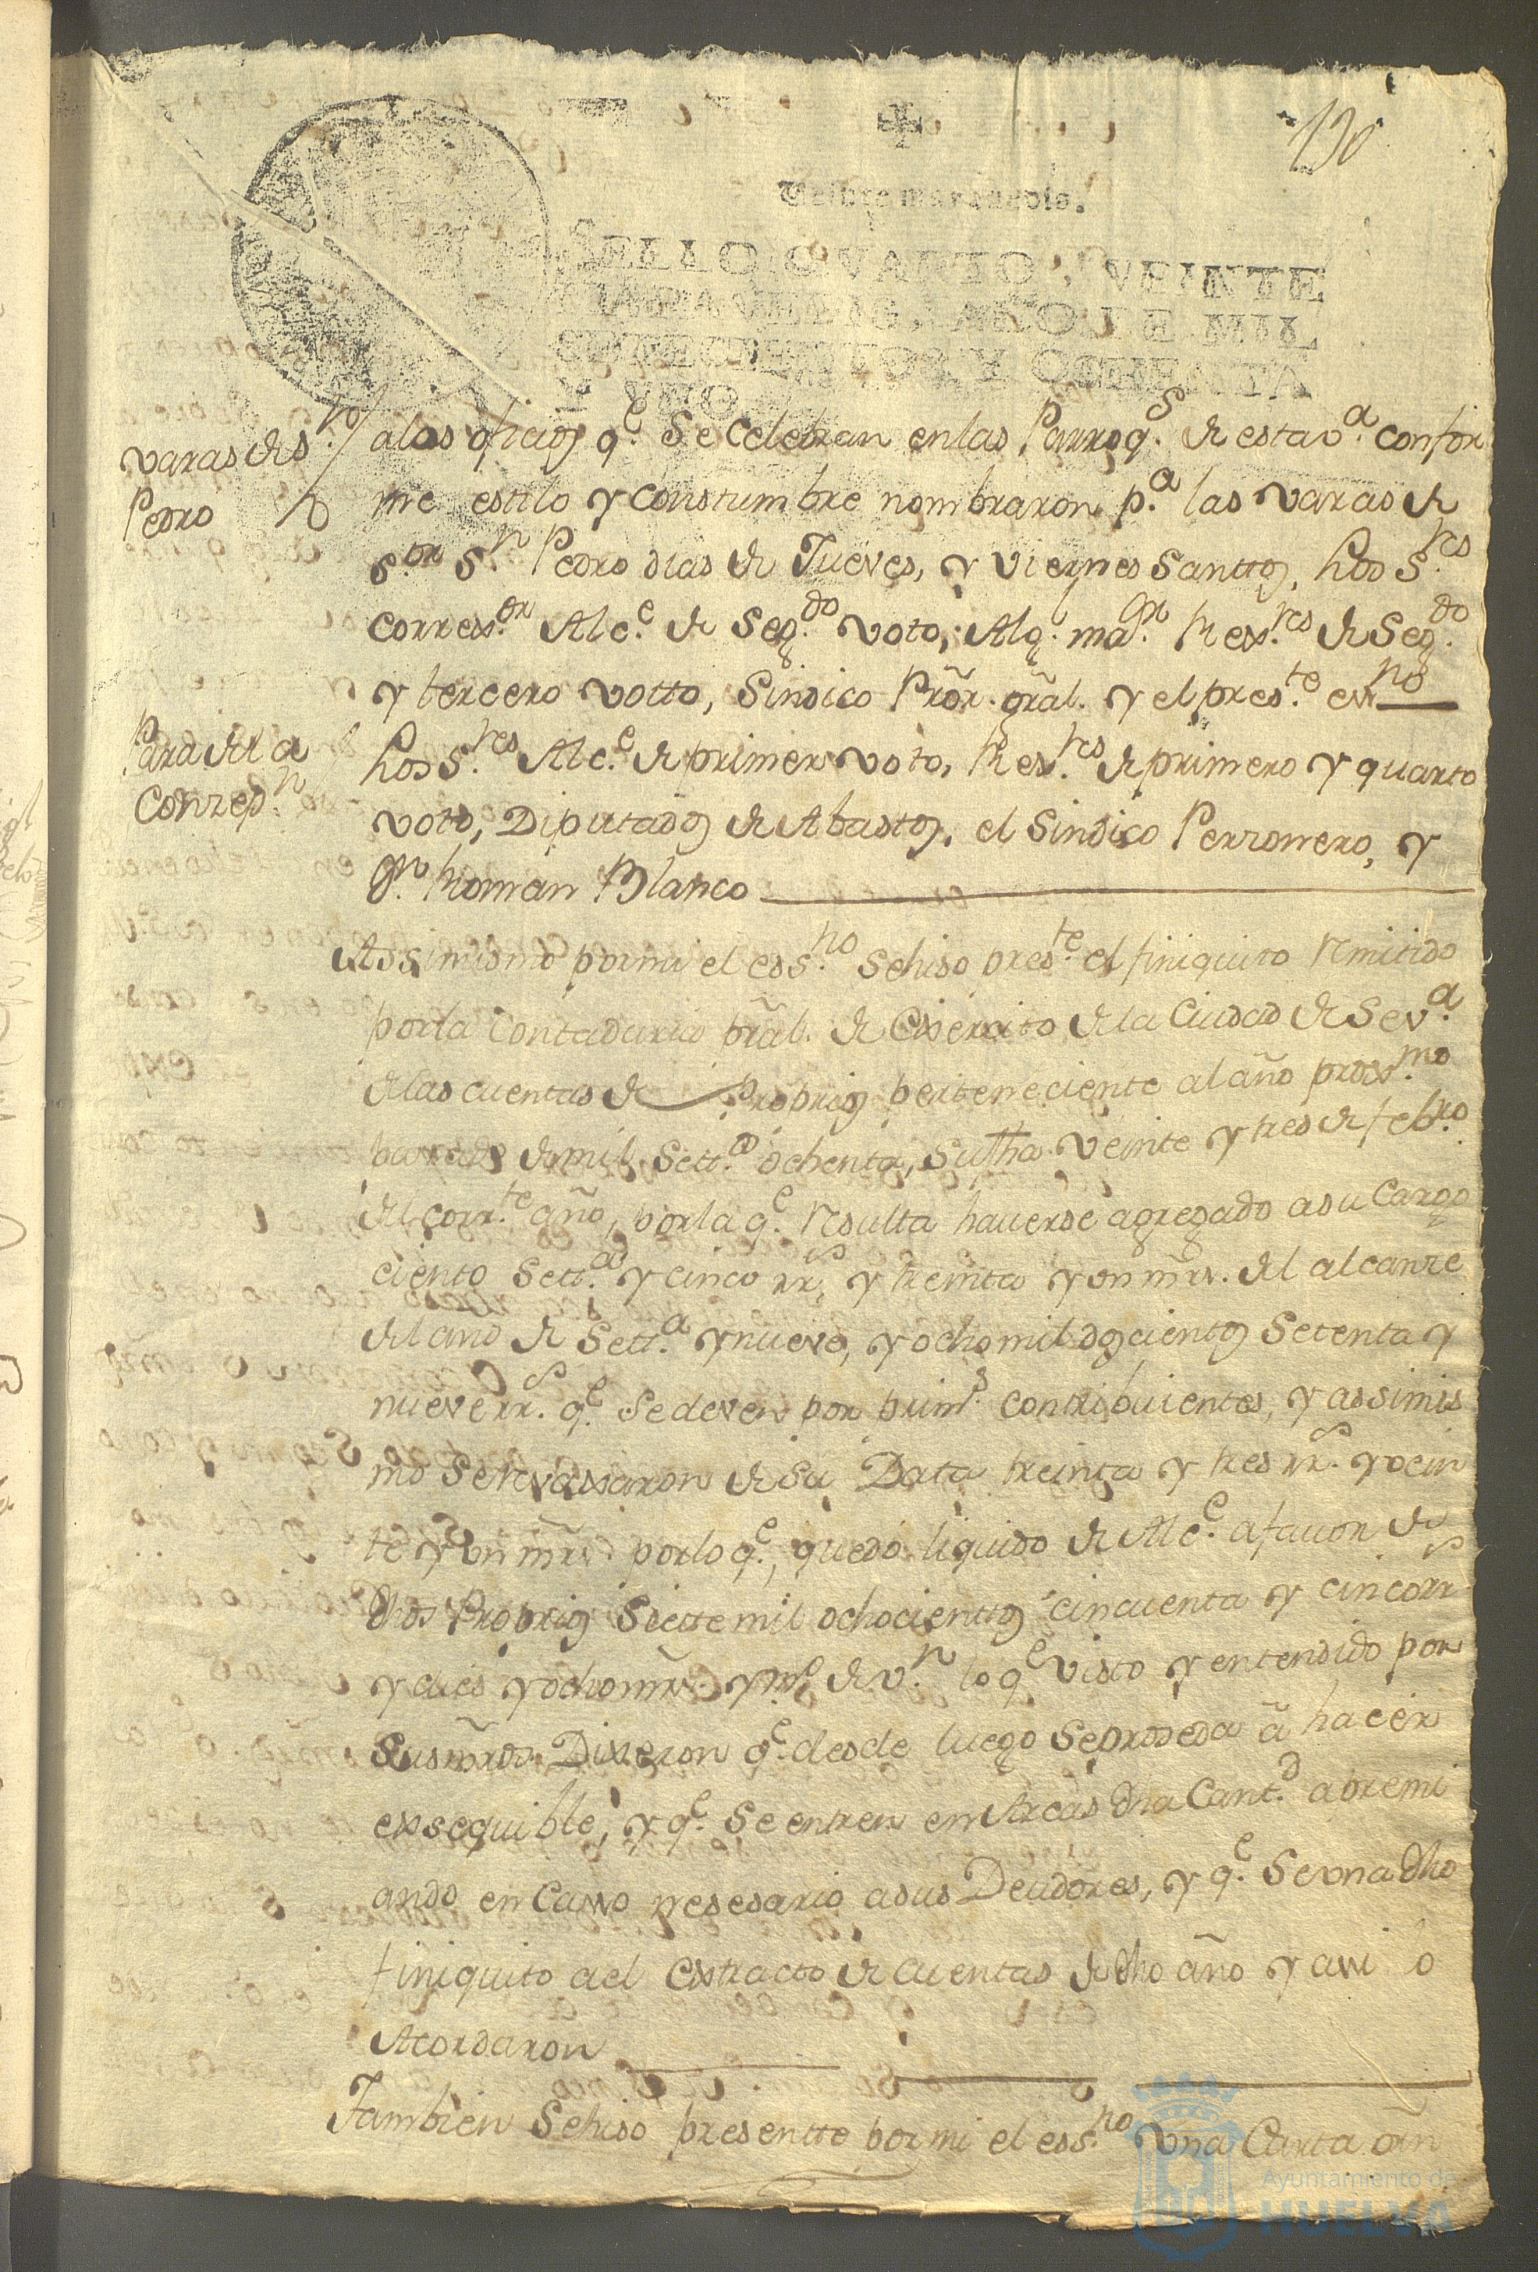 130
Veinte maravedis.
SELLO QVARTO, VEINTE
MARAVEDIS, AÑO DE MIL
SETECIENTOS Y OCHENTA
Y VNO
varas de S.n
Pedro
a los oficios q.e Se Celebran en las Parroq.s de esta v.a confor
me estilo y Constumbre nombraron p.a las varas de
S.or S.n Pedro dias de Jueves, y Viernes Santtos, los S.res
corress.or Alc.e de Seg.do voto, Alg. ma.or Rex.res de Seg.do
y tercero votto, Sindico Prõr. grãl. y el pres.te esn.no
Para de la
Conzep.n
los S.res Alc.e de primer voto, Rex.res de primero y quarto
voto, Diputados de Abastos, el Sindico Perzonero, y
Dn. Roman Blanco
Assimismo por mi el ess.no se hiso pres.te el finiquito Remitido
por la Contaduria prãl. de Exercito de la Ciudad de Sev.a
de las cuentas de Proprios perteneciente al año prox.mo
pasado de mil Sett.s ochenta, Su fha veinte y tres de feb.ro
del corr.te año, por la q.e Resulta haverse agregado a su Cargo
ciento Sett.a y cinco rr.s y treinta y un mrs. del alcanze
del año de Sett.a y nueve, y ocho mil doscientos Setenta y
nueve rr.s q.e Se deven por prim.s contribuientes, y assimis
mo Se revaxaron de Su Data treinta y tres rr.s y vein
te y un mrs. por lo q.e, quedó liquido de Alc.e a favor de
dhos Proprios Siette mil ochocienttos cincuenta y cinco rr.s
y dies y ocho mrs. y m.o de v.n lo q.e visto y entendido por
Sus mrds. Dixeron q.e desde luego Se proseda â hacer
exsequible, y q.e Se entren en Arcas dha Cant.d apremi
ando en Casso nesesario a sus Deudores, y q.e Se vna dho
finiquito a el Extracto de cuentas de dho año y assi lo
Acordaron
Tambien Se hiso presentte por mi el ess.no vna Carta orñ
Ayuntamiento de
HUELVA